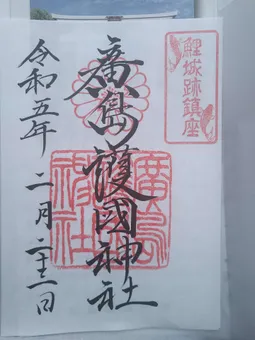 鯉城跡鎮座
廣島護國神社
廣島
神社
令和五年 二月二十一日